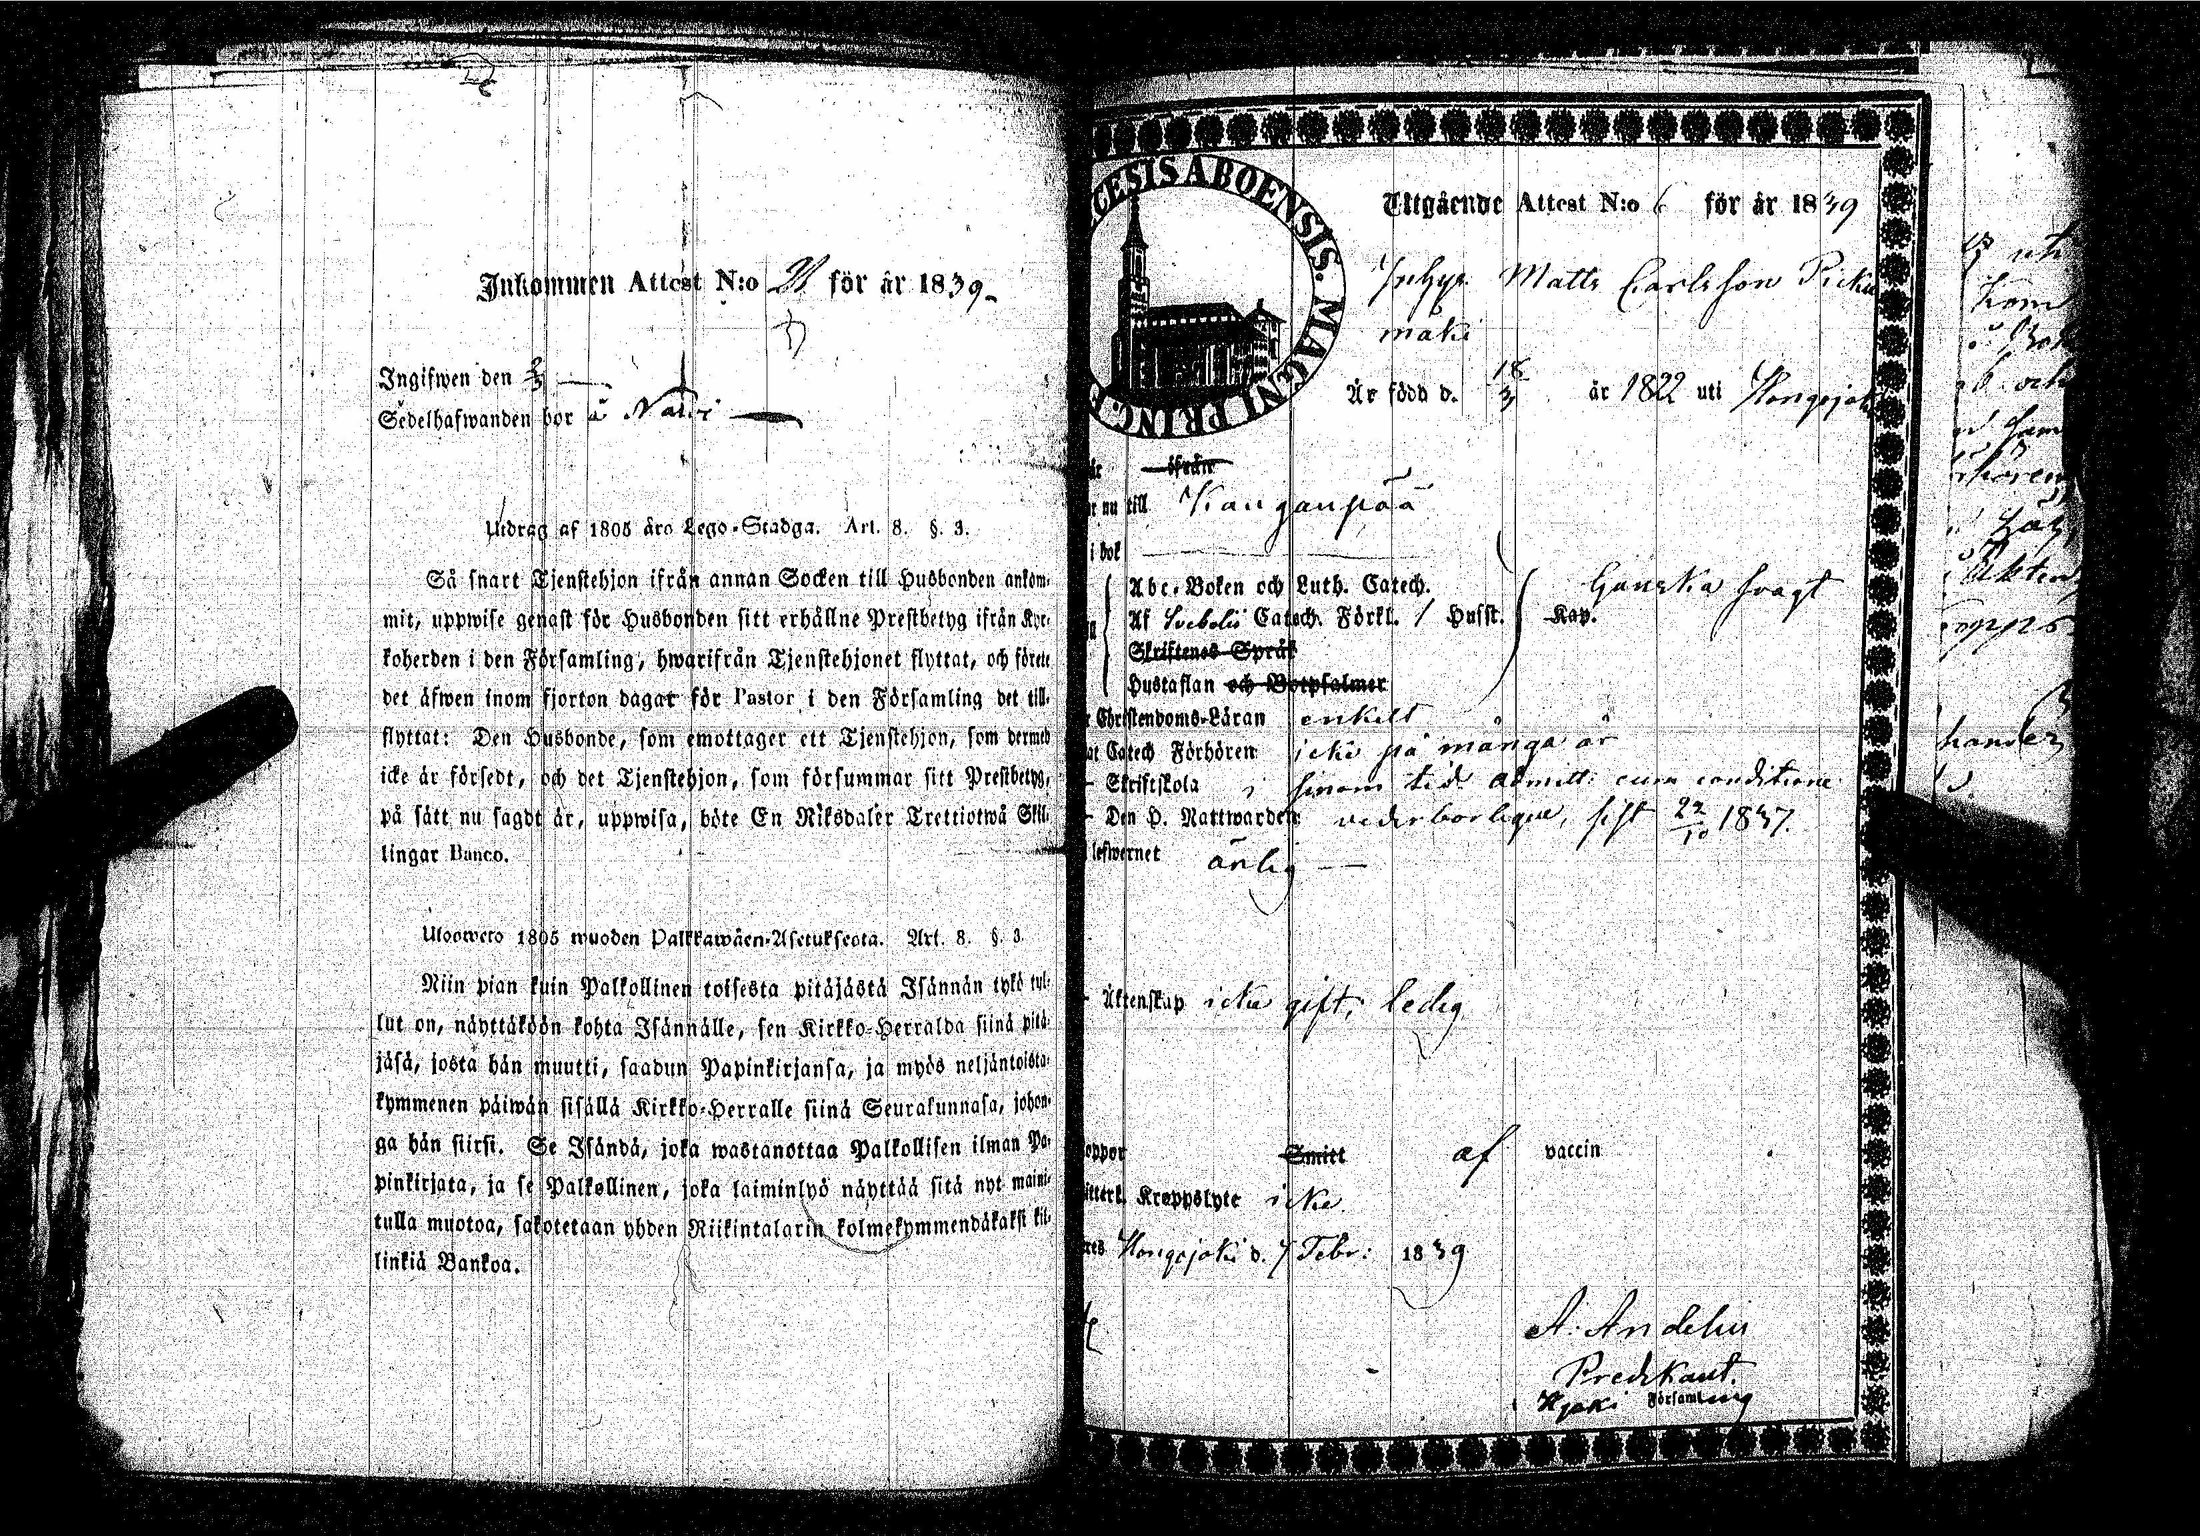 Inkommen Attest N:o 21 för år 1839.
Ingifwen den 2/3
Sedelhafwanden bor å Narvi
Utdrag af 1805 års Lego-Stadga. Art. 8. §. 3.
Så snart Tjenstehjon ifrån annan Socken till Husbonden ankom-
mit, uppwise genast för Husbonden sitt erhållne Prestbetyg ifrån Kyr-
koherden i den Församling, hwarifrån Tjenstehjonet flyttat, och förete
det äfwen inom fjorton dagar för Pastor i den Församling det till-
flyttat: Den Husbonde, som emottager ett Tjenstehjon, som dermed
icke är försedt, och det Tjenstehjon, som försummar sitt Prestbetyg,
på sätt nu sagdt är, uppwisa, böte En Riksdaler Trettiotwå Skil-
lingar Banco.
Ulosweto 1805 wuoden Palkkawäen-Asetuksesta. Art. 8. §. 3.
Niin pian kuin Palkollinen toisesta pitäjästä Isännän tykö tul-
lut on, näyttäköön kohta Isännälle, sen Kirkko-Herralda siinä pitä-
jäsä, josta hän muutti, saadun Papinkirjansa, ja myös neljäntoista-
kymmenen päiwän sisällä Kirkko-Herralle siinä Seurakunnasa, johon-
ga hän siirsi. Se Isändä, joka wastanottaa Palkollisen ilman Pa-
pinkirjata, ja se Palkollinen, joka laiminlyö näyttää sitä nyt maini-
tulla muotoa, sakotetaan yhden Riikintalarin kolmekymmendäkaksi kil-
linkiä Bankoa.
CESIS ABOENSIS. MAGNI PRINC. F
Utgående Attest N:o 6 för år 1839
Matts Carlsson
mäki
Är född d. 18/3 år 1822 uti Hongojok
ifrån
nu till Kanganpää
i bok
Abc-Boken och Luth. Catech. Ganska svagt
Af Svebelii Catech. Förkl. / Husst. Kap.
Skriftenes Språk
Hustaflan och Botpsalmer
Christendoms-Läran enkelt
Catech Förhören icke på många år
Skriftskola i sinom tid admitt: cum conditione
Den H. Nattwarden vederborligen, sist 22/10 1837.
lefwernet ärlig
Äktenskap icke gift; ledig
oppor Smitt af vaccin
Kroppslyte icke
Hongojoki d. 7 Febr: 1839
A. Andelin
Predikant.
Hjoki Församling